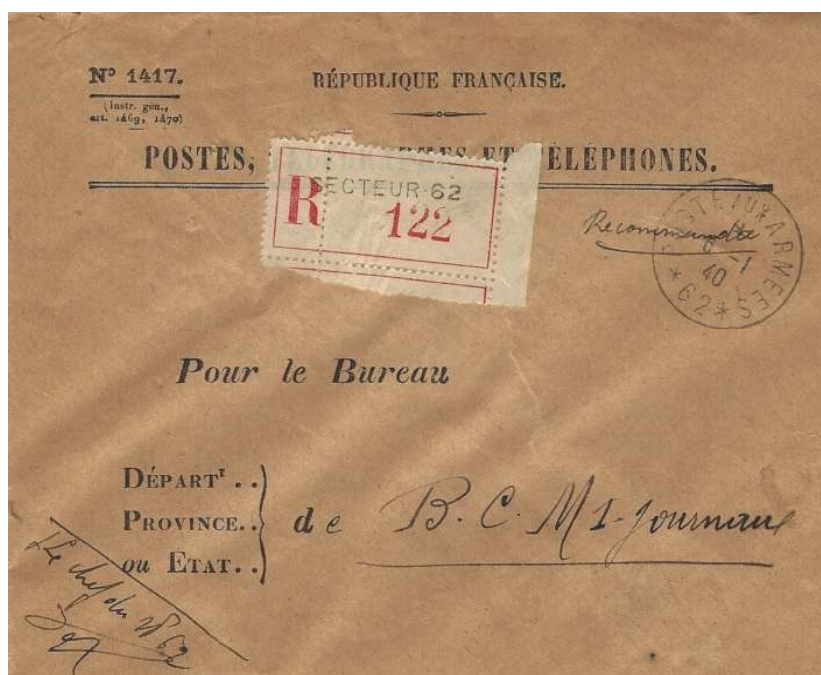 Nº 1417.
(Instr. gén.,
art. 1469, 1470)
RÉPUBLIQUE FRANÇAISE.
POSTES, ET TÉLÉPHONES.
SECTEUR 62
R 122
Recommandée
POSTE AUX ARMEES
6 -1
40
* 62 *
Pour le Bureau
DÉPARTᵗ . .
PROVINCE. .
ou ETAT. .
de B. C. M 1-Journaux
Le chef du